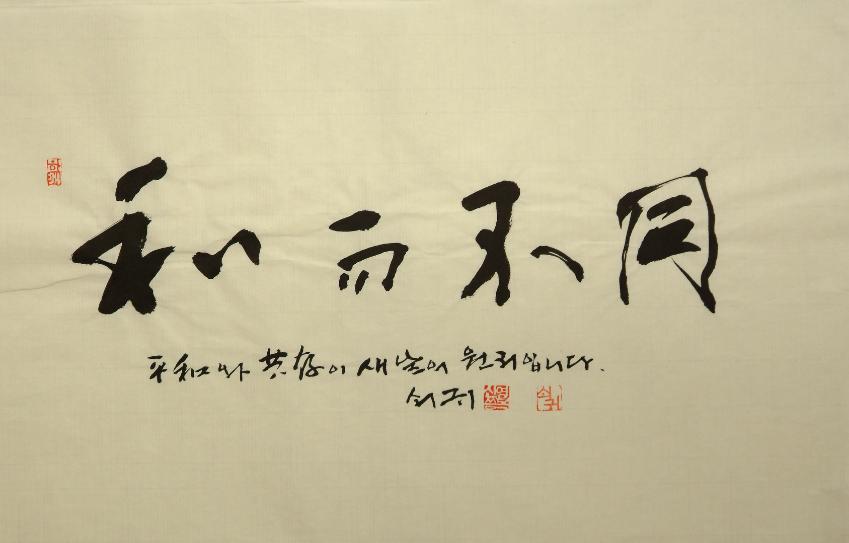 和而不同
平和와 共存이 새 날의 원리입니다.
쇠귀